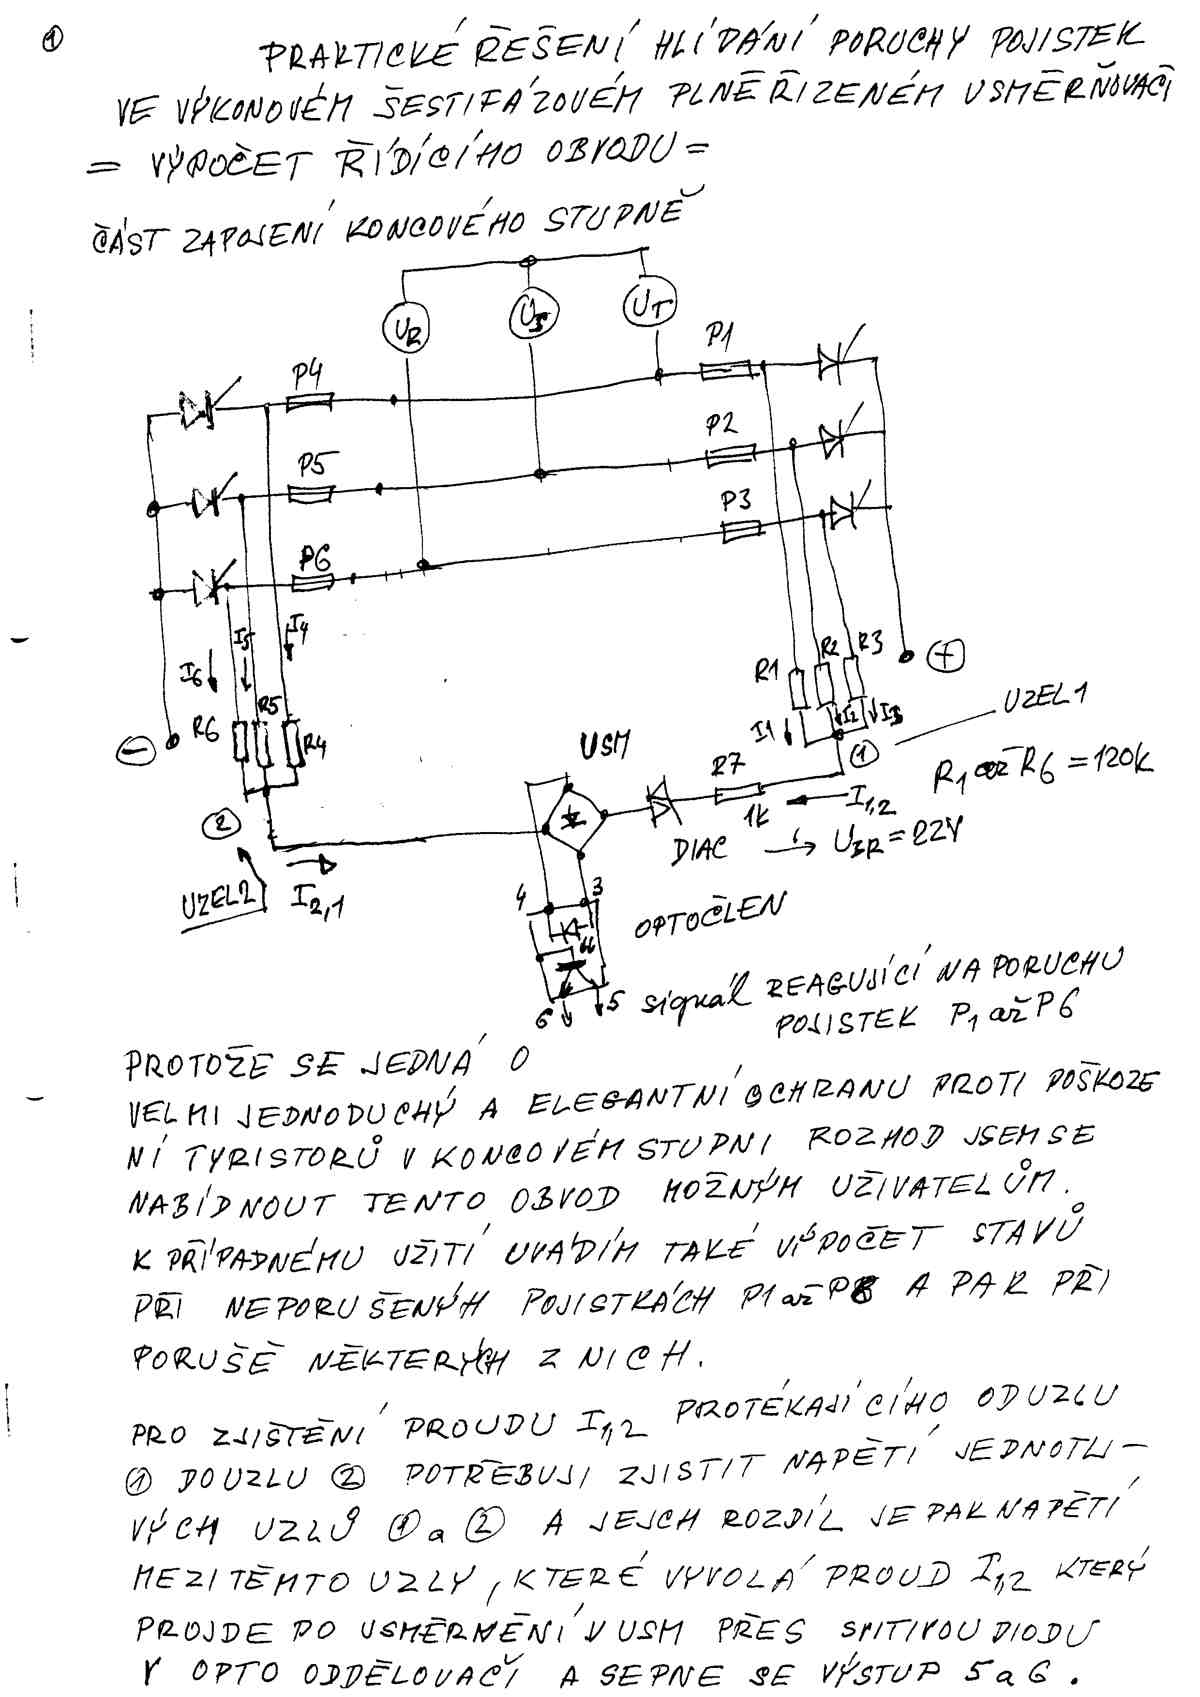 ①
PRAKTICKÉ ŘEŠENÍ HLÍDÁNÍ PORUCHY POJISTEK
VE VÝKONOVÉM ŠESTIFÁZOVÉM PLNĚŘÍZENÉM USMĚRŇOVAČI
= VÝPOČET ŘÍDÍCÍHO OBVODU =
ČÁST ZAPOJENÍ KONCOVÉHO STUPNĚ
UR US UT
P1
P4
P2
P5
P3
P6
I4
I5
I6
R1 R2 R3
+
UZEL 1
R6 R5 R4
I1 I2 I3
-
USM
R7
①
R1 až R6 = 120K
1K
I1,2
②
DIAC → UBR = 22V
UZEL 2
I2,1
4 3
OPTOČLEN
6 5
signál REAGUJÍCÍ NA PORUCHU
POJISTEK P1 až P6
PROTOŽE SE JEDNÁ O
VELMI JEDNODUCHÝ A ELEGANTNÍ OCHRANU PROTI POŠKOZE
NÍ TYRISTORŮ V KONCOVÉM STUPNI ROZHOD JSEM SE
NABÍDNOUT TENTO OBVOD MOŽNÝM UŽIVATELŮM.
K PŘÍPADNÉMU UŽITÍ UVÁDÍM TAKÉ VÝPOČET STAVŮ
PŘI NEPORUŠENÝCH POJISTKÁCH P1 až P6 A PAK PŘI
PORUŠE NĚKTERÝCH Z NICH.
PRO ZJIŠTĚNÍ PROUDU I1,2 PROTÉKAJÍCÍHO OD UZLU
① DO UZLU ② POTŘEBUJI ZJISTIT NAPĚTÍ JEDNOTLI-
VÝCH UZLŮ ① a ② A JEJCH ROZDÍL JE PAK NAPĚTÍ
MEZI TĚMTO UZLY, KTERÉ VYVOLÁ PROUD I1,2 KTERÝ
PROJDE PO USMĚRNĚNÍ V USM PŘES SVITIVOU DIODU
V OPTO ODDĚLOVAČI A SEPNE SE VÝSTUP 5 a 6.